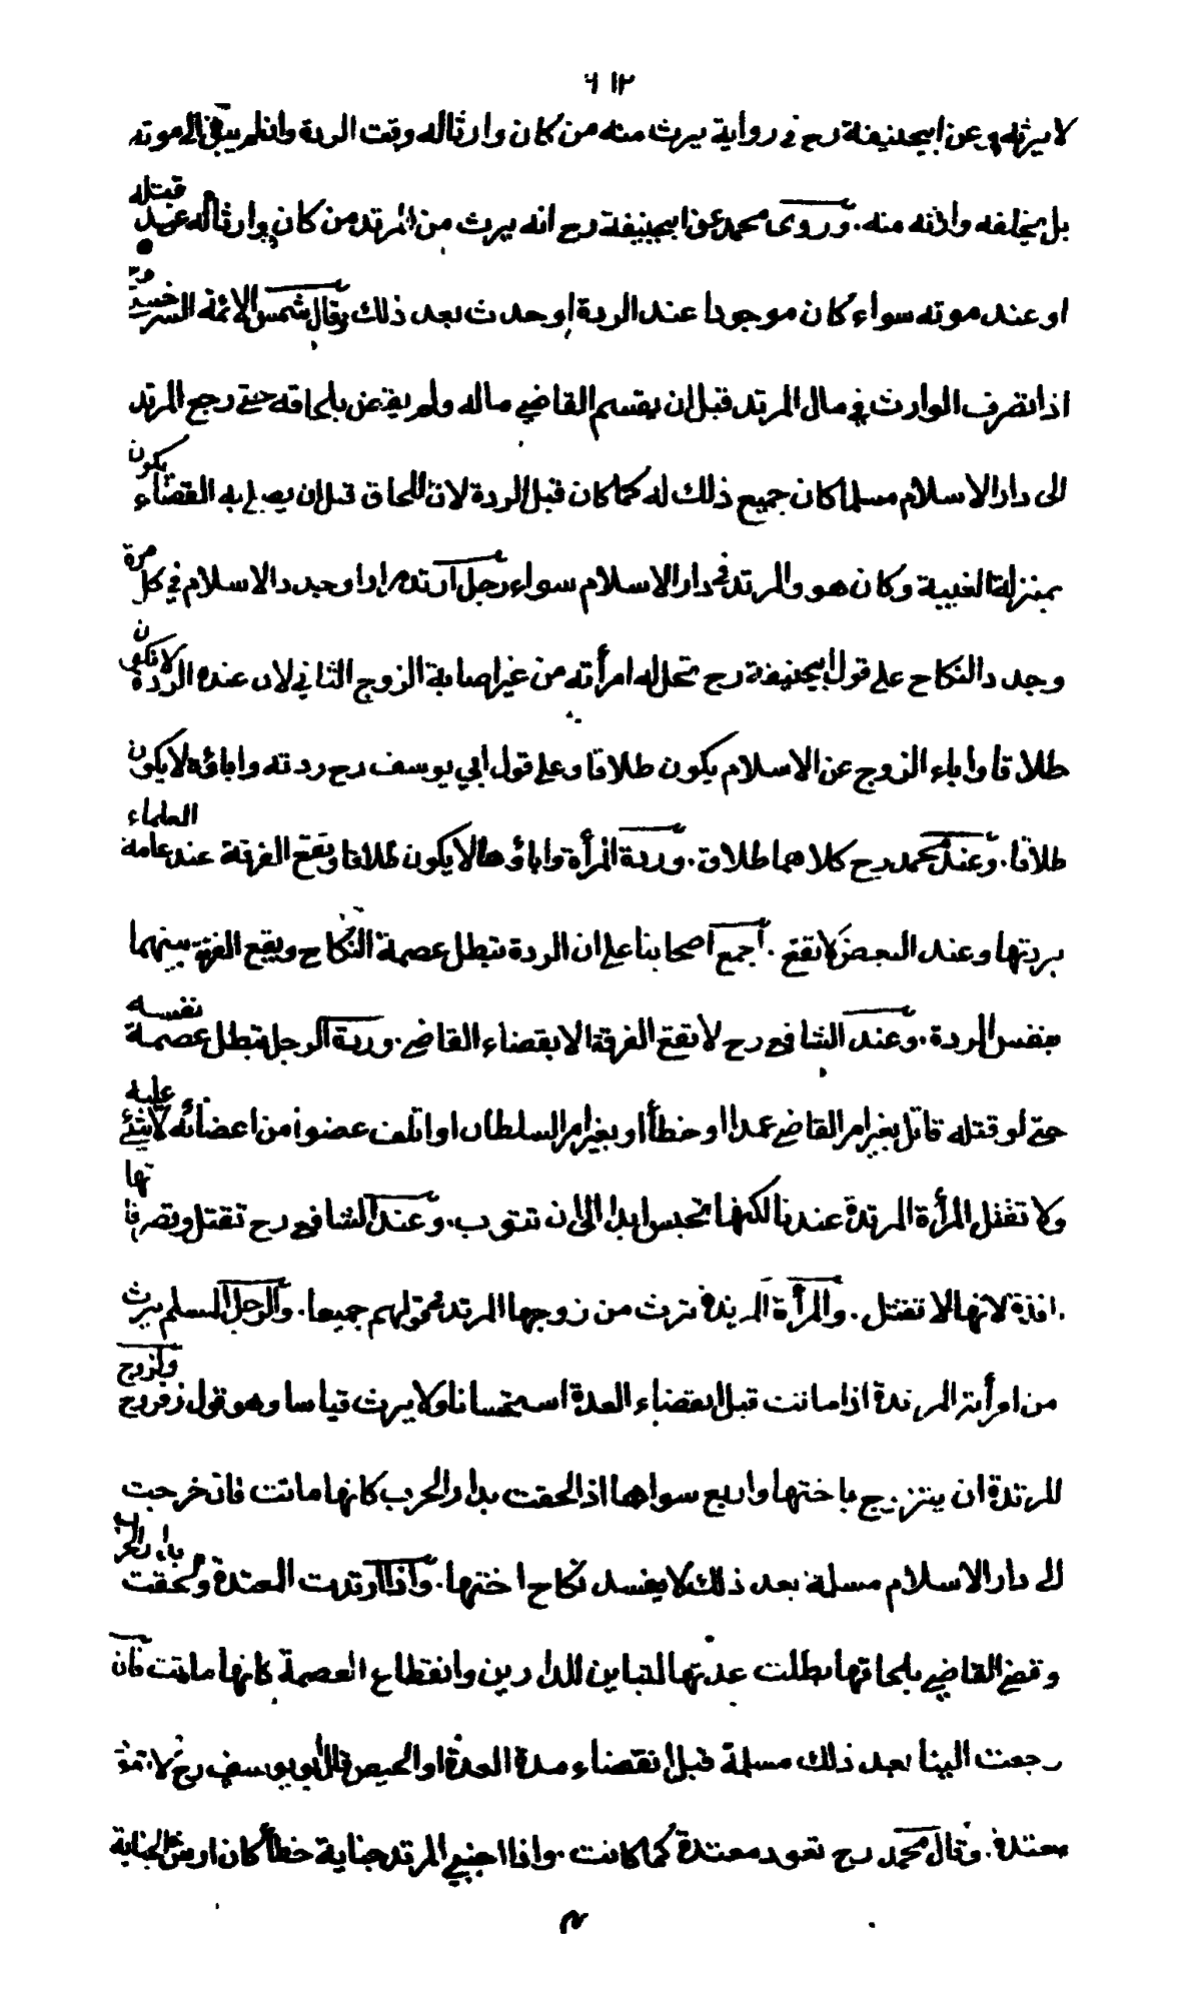 ٦١٢
لا يرثه وعن ابيحنيفة رح في رواية يرث منه من كان وارثا له وقت الردة وان لم يبق الى موته
بل يخلفه وارثه منه. وروى محمد عن ابيحنيفة رح انه يرث من المرتد من كان وارثا له عند قتله
او عند موته سواء كان موجودا عند الردة او حدث بعد ذلك وقال شمس الائمة السرخسي رح
اذا تصرف الوارث في مال المرتد قبل ان يقسم القاضي ماله ولم يقض بلحاقه حتى رجع المرتد
الى دار الاسلام مسلما كان جميع ذلك له كما كان قبل الردة لان اللحاق قبل ان يصل به القضاء يكون
بمنزلة الغيبة وكان هو والمرتد في دار الاسلام سواء رجل ارتد مرارا وجدد الاسلام في كل مرة
وجدد النكاح على قول ابيحنيفة رح تحل له امرأته من غير اصابة الزوج الثاني لان عنده الردة لا تكون
طلاقا واباء الزوج عن الاسلام يكون طلاقا وعلى قول ابي يوسف رح ردته واباؤه لا يكون
طلاقا. وعند محمد رح كلاهما طلاق. وردة المرأة واباؤها لا يكون طلاقا وتقع الفرقة عند عامة العلماء
بردتها وعند البعض لا تقع. اجمع اصحابنا على ان الردة تبطل عصمة النكاح ويقع الفرقة بينهما
بنفس الردة. وعند الشافعي رح لا تقع الفرقة الا بقضاء القاضي. وردة الرجل تبطل عصمة نفسه
حتى لو قتله قاتل بغير امر القاضي عمدا او خطأ او بغير امر السلطان او اتلف عضوا من اعضائه لا شئ عليه
ولا تقتل المرأة المرتدة عندنا لكنها تحبس ابدا الى ان تتوب. وعند الشافعي رح تقتل وتصرفاتها
نافذة لانها لا تقتل. والمرأة المرتدة ترث من زوجها المرتد في قولهم جميعا. والرجل المسلم يرث
من امرأته المرتدة اذا ماتت قبل انقضاء العدة استحسانا ولا يرث قياسا وهو قول زفر رح ولزوج
المرتدة ان يتزوج باختها واربع سواها اذا لحقت بدار الحرب كانها ماتت فان خرجت
الى دار الاسلام مسلمة بعد ذلك لا يفسد نكاح اختها. واذا ارتدت المعتدة ولحقت بدار الحرب
وقضى القاضي بلحاقها بطلت عدتها لتباين الدارين وانقطاع العصمة كانها ماتت فان
رجعت الينا بعد ذلك مسلمة قبل انقضاء مدة العدة او الحيض قال ابو يوسف رح لا تعود
معتدة. وقال محمد رح تعود معتدة كما كانت. واذا اجنى المرتد جناية خطأ كان ارش الجناية